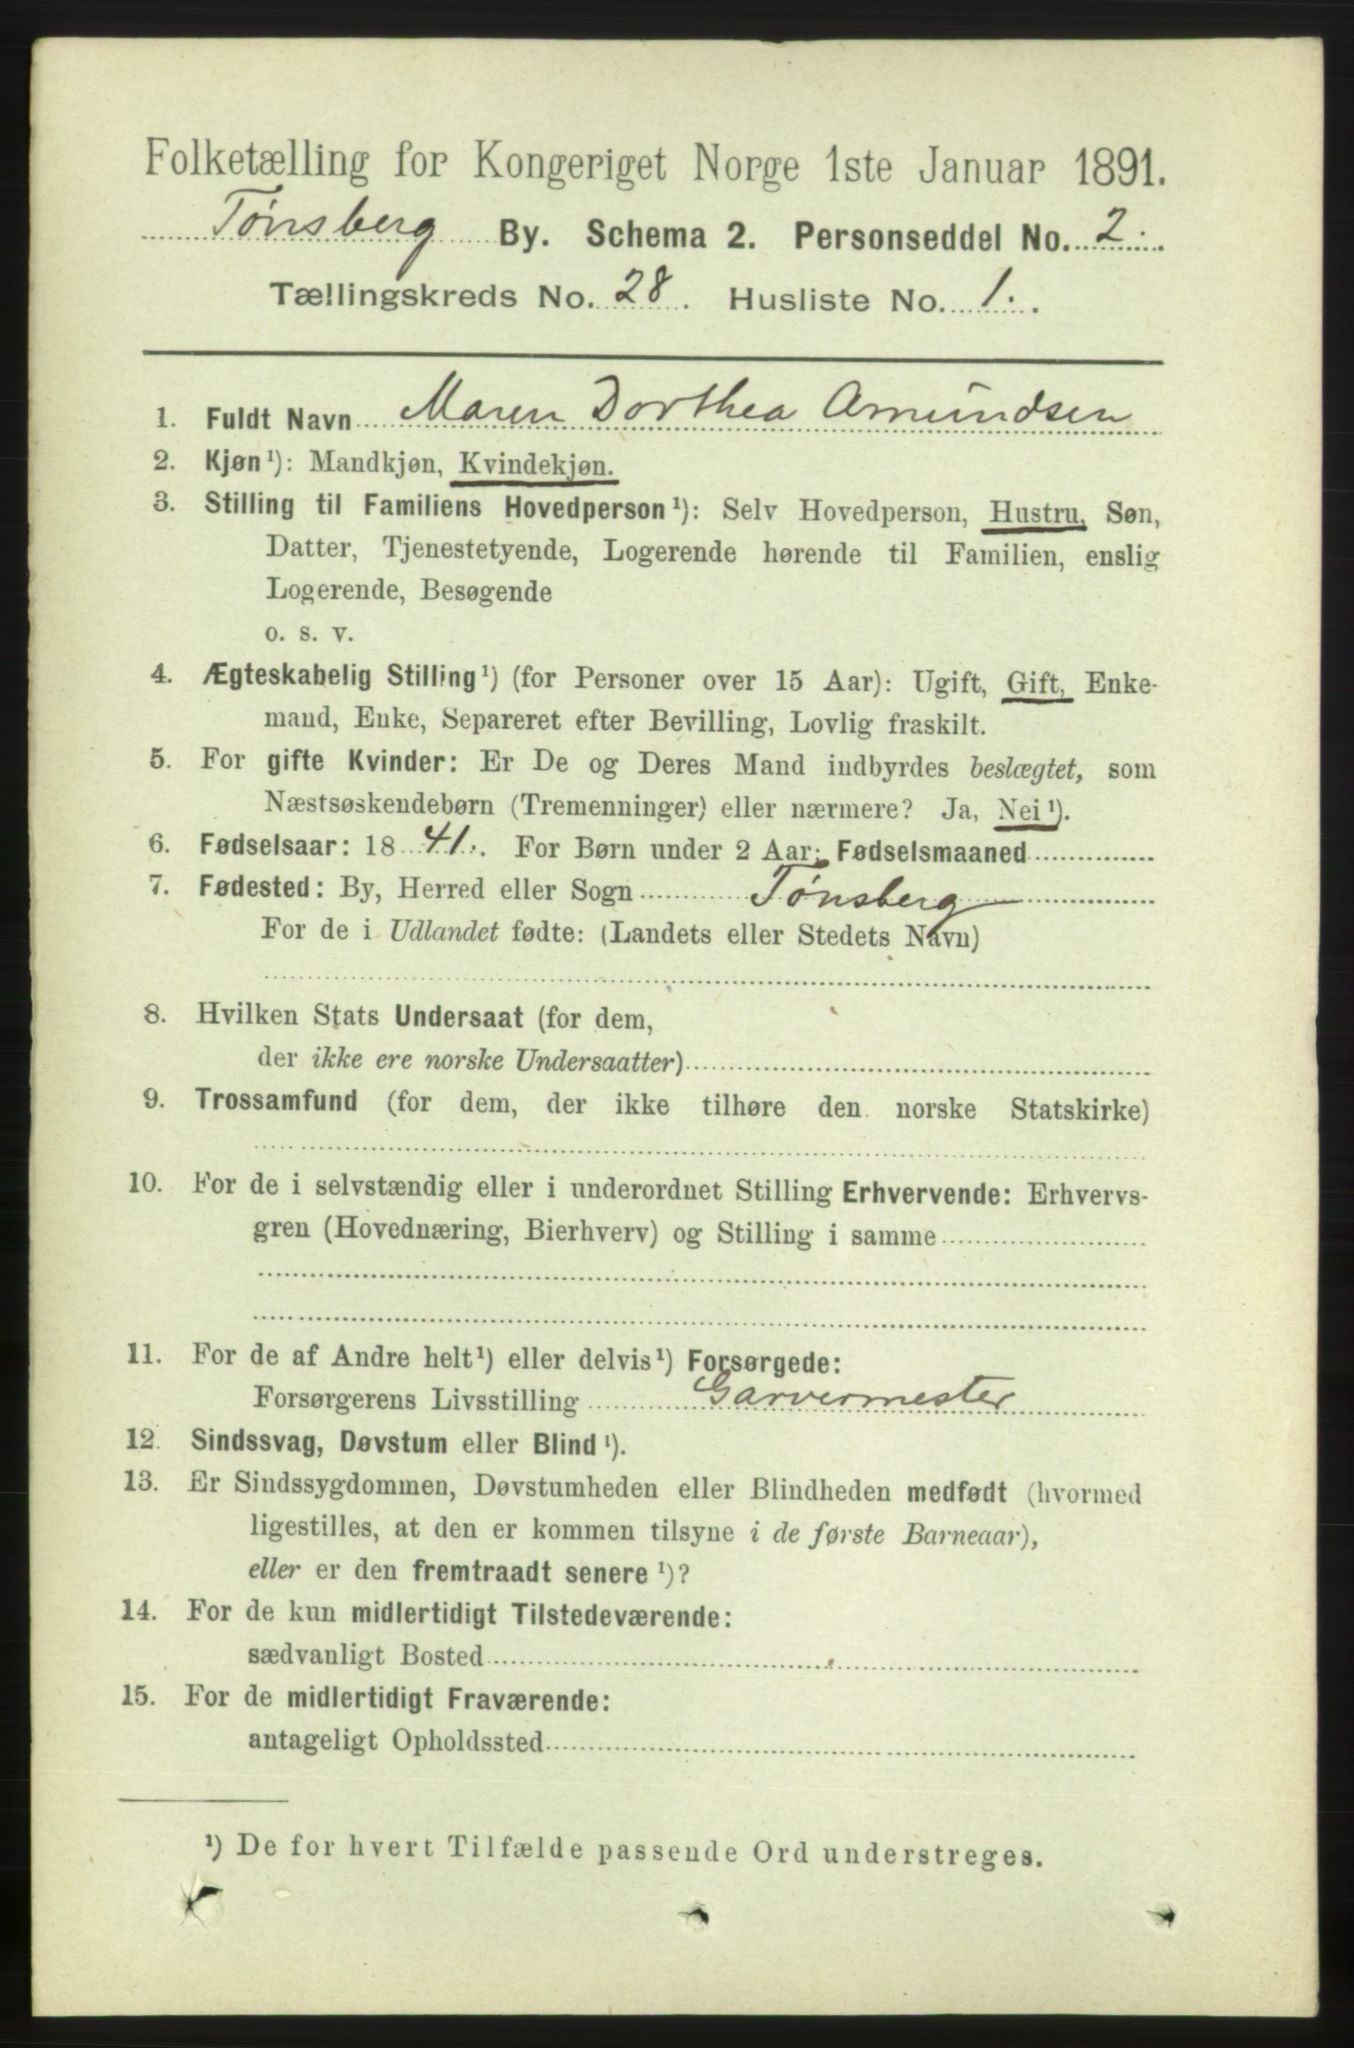 Folketælling for Kongeriget Norge 1ste Januar 1891.
Tønsberg By. Schema 2. Personseddel No. 2.
Tællingskreds No. 28. Husliste No. 1.
1. Fuldt Navn Maren Dorthea Amundsen
2. Kjøn ¹): Mandkjøn, Kvindekjøn.
3. Stilling til Familiens Hovedperson ¹): Selv Hovedperson, Hustru, Søn,
Datter, Tjenestetyende, Logerende hørende til Familien, enslig
Logerende, Besøgende
o. s. v.
4. Ægteskabelig Stilling ¹) (for Personer over 15 Aar): Ugift, Gift, Enke-
mand, Enke, Separeret efter Bevilling, Lovlig fraskilt.
5. For gifte Kvinder: Er De og Deres Mand indbyrdes beslægtet, som
Næstsøskendebørn (Tremenninger) eller nærmere? Ja, Nei ¹).
6. Fødselsaar: 1841. For Børn under 2 Aar: Fødselsmaaned
7. Fødested: By, Herred eller Sogn Tønsberg
For de i Udlandet fødte: (Landets eller Stedets Navn)
8. Hvilken Stats Undersaat (for dem,
der ikke ere norske Undersaatter)
9. Trossamfund (for dem, der ikke tilhøre den norske Statskirke)
10. For de i selvstændig eller i underordnet Stilling Erhvervende: Erhvervs-
gren (Hovednæring, Bierhverv) og Stilling i samme
11. For de af Andre helt ¹) eller delvis ¹) Forsørgede:
Forsørgerens Livsstilling Garvermester
12. Sindssvag, Døvstum eller Blind ¹).
13. Er Sindssygdommen, Døvstumheden eller Blindheden medfødt (hvormed
ligestilles, at den er kommen tilsyne i de første Barneaar),
eller er den fremtraadt senere ¹)?
14. For de kun midlertidigt Tilstedeværende:
sædvanligt Bosted
15. For de midlertidigt Fraværende:
antageligt Opholdssted
¹) De for hvert Tilfælde passende Ord understreges.